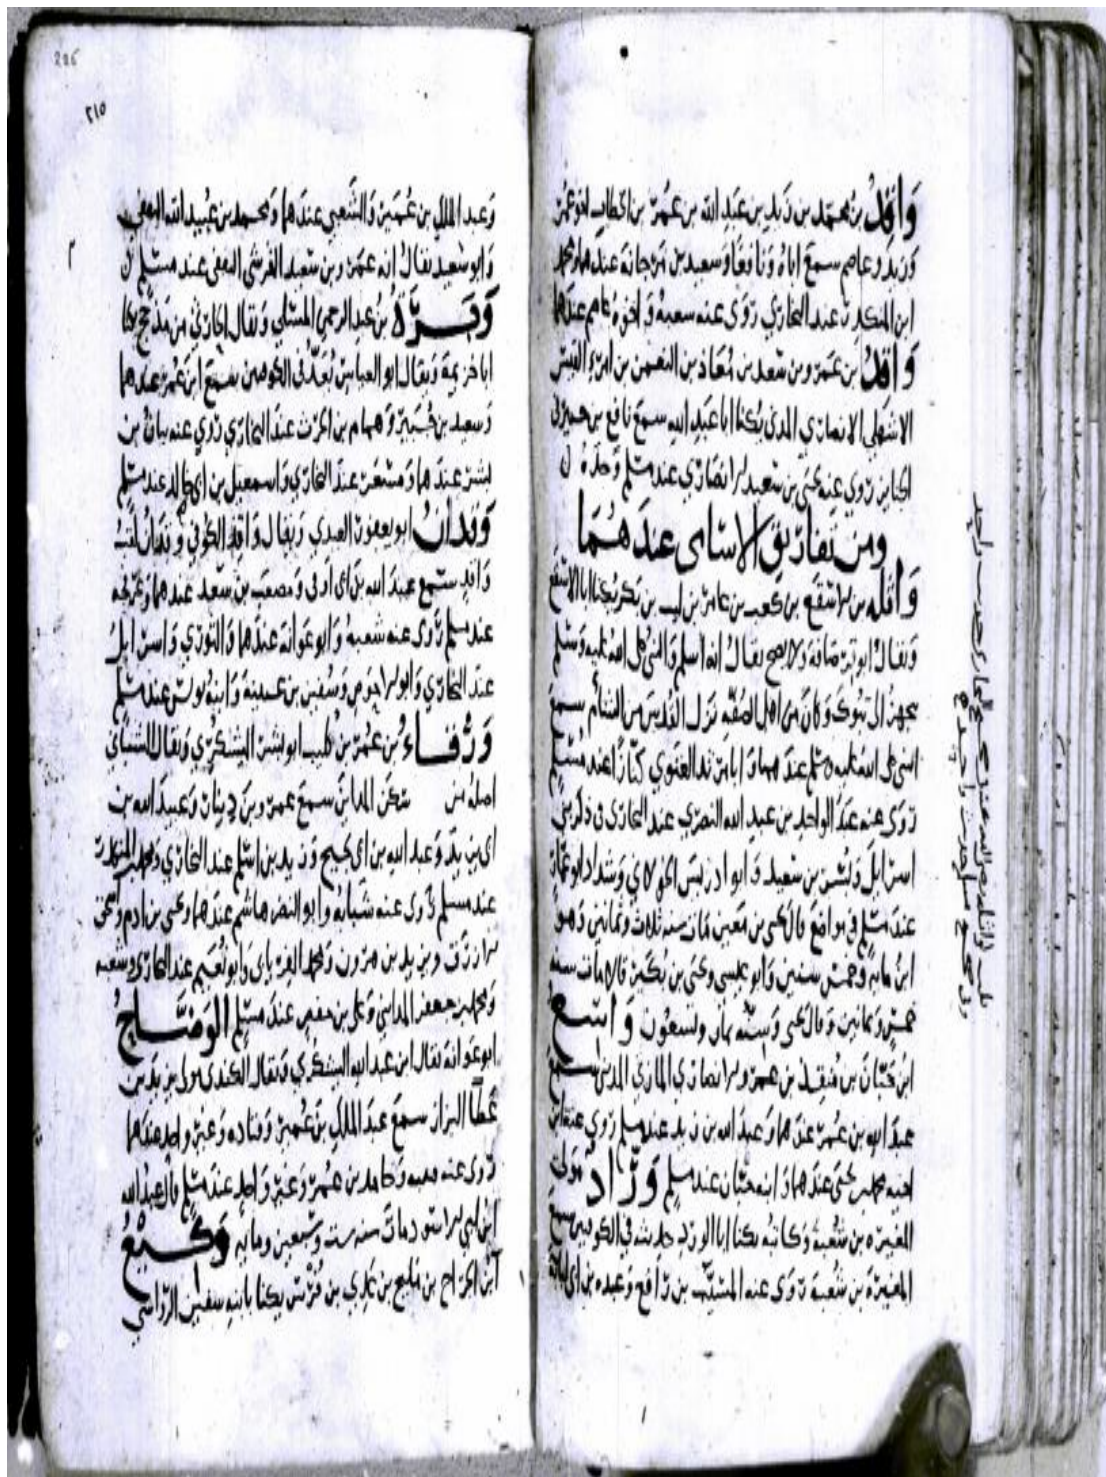 وَاقدُ بن محمد بن زيد بن عبد الله بن عمر بن الخطاب اخو عمر
وزيد وعاصم سمع اباه ونافعا وسعيد بن مرجانه عندهما ومحمد
ابن المنكدر عند البخاري روى عنه شعبه واخوه عاصم عندهما
وَاقدُ بن عمرو بن سعد بن معاذ بن النعمن بن امرؤ القيس
الاشهلي الانصاري المدني يكنا ابا عبد الله سمع نافع بن جبير في
الجنايز روى عنه يحيى بن سعيد الانصاري عند مسلم وحده
ومن تفاريق الاسامى عندهما
واثله بن الاسقع بن كعب بن عامر بن ليث بن بكر يكنا ابا الاسقع
ويقال ابو قرصافة ولا يصح يقال انه اسلم والنبي صلى الله عليه وسلم
يجهز الى تبوك وكان من اهل الصفه نزل القدس من الشام سمع
النبي صلى الله عليه وسلم عندهما وابا مرثد الغنوي كنازا عند مسلم
روى عنه عبد الواحد بن عبد الله النصري عند البخارى فى ذكر بني
اسرايل وبسر بن سعيد وابو ادريس الخولاني وشداد ابو عمار
عند مسلم في مواضع قال يحيى بن معين مات سنه ثلاث وثمانين وهو
ابن مايه وخمس سنين وابو عيسى ويحيى بن بكير قالا مات سنه
خمس وثمانين وقال يحيى وسنه ثمان وتسعون واسع
ابن حبان بن منقذ بن عمرو الانصاري المازني المدني سمع
عبد الله بن عمر عندهما وعبد الله بن زيد عند مسلم روى عنه ابن
اخيه محمد بن يحيى عندهما وابنه حبان عند مسلم وراد مولى
المغيره بن شعبة وكاتبه يكنا ابا الورد حديثه في الكوفيين سمع
المغيرة بن شعبه روى عنه المسيب بن رافع وعبده بن ابي لبابة
٢١٥
وعبد الملك بن عمير والشعبي عندهما ومحمد بن عبيد الله الثقفي
وابو سعيد يقال انه عمرو بن سعيد القرشي الثقفي عند مسلم
وَبَرَة بن عبد الرحمن المسلي ويقال الحارثي من مذحج يكنا
ابا خزيمة ويقال ابو العباس يعد في الكوفيين سمع ابن عمر عندهما
وسعيد بن جبير وهمام بن الحرث عند البخاري روى عنه بيان بن
بشر عندهما ومسعر عند البخاري واسمعيل بن ابي خالد عند مسلم
وقدان ابو يعفور العبدي ويقال واقد الكوفي ووقدان لقبه
واقد سمع عبد الله بن ابى اوفى ومصعب بن سعد عندهما وعرفجه
عند مسلم روى عنه شعبه وابو عوانة عندهما والثوري واسرايل
عند البخاري وابو الاحوص وسفين بن عيينة وابنه يونس عند مسلم
ورقاء بن عمر بن كليب ابو بشر اليشكري ويقال الشيباني
اصله من سكن المداين سمع عمرو بن دينار وعبيد الله بن
ابي يزيد وعبد الله بن ابي نجيح وزيد بن اسلم عند البخاري ومحمد بن المنكدر
عند مسلم روى عنه شبابه وابو النضر هاشم عندهما ويحيى بن ادم واسحق
الازرق ويزيد بن هرون ومحمد الفريابي وابو نعيم عند البخارى وشعبه
ومحمد بن جعفر المدايني وعلى بن حفص عند مسلم الوضاح
ابو عوانة يقال ابن عبد الله اليشكري ويقال الكندي مولى يزيد بن
عطا البزاز سمع عبد الملك بن عمير وقتاده وغير واحد عندهما
روى عنه شعبه وحامد بن عمر وغير واحد عند مسلم قال عبد الله
ابن ابي الاسود مات سنه ست وسبعين ومايه وكيع
ابن الجراح بن مليح بن عدي بن فرس يكنا بابنه سفين الرؤاسي